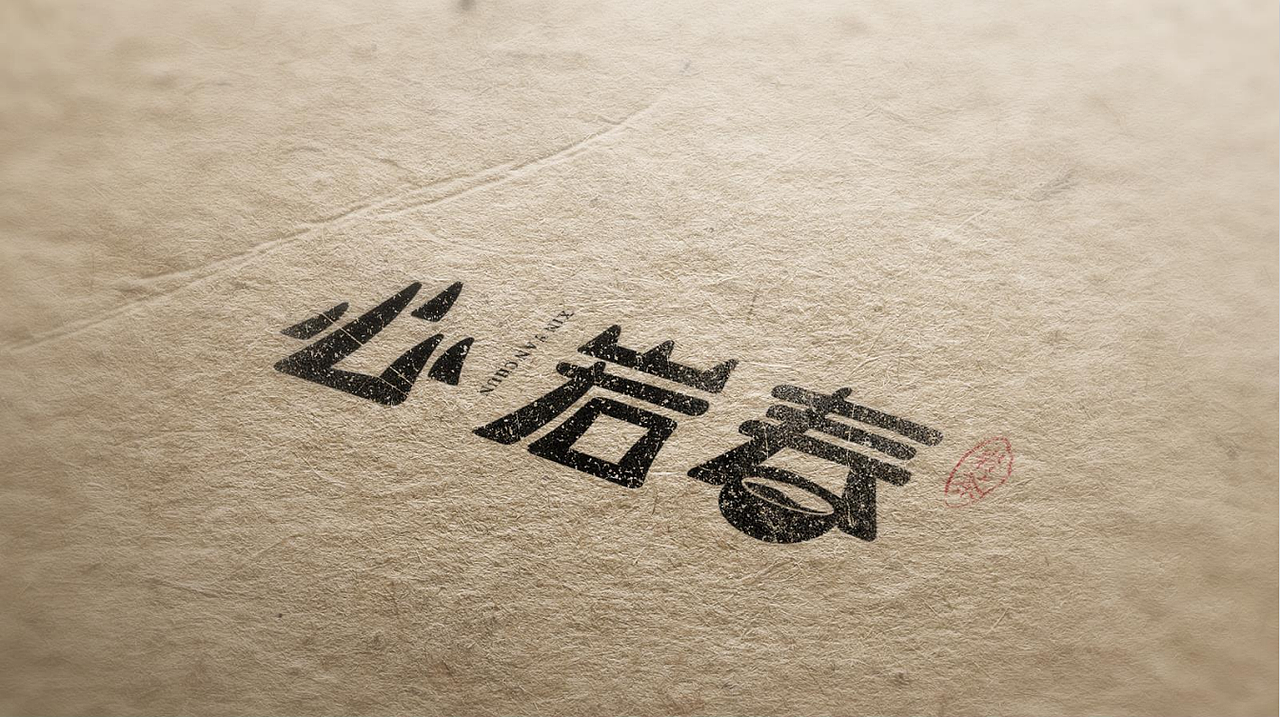 心岩春
XIN YAN CHUN